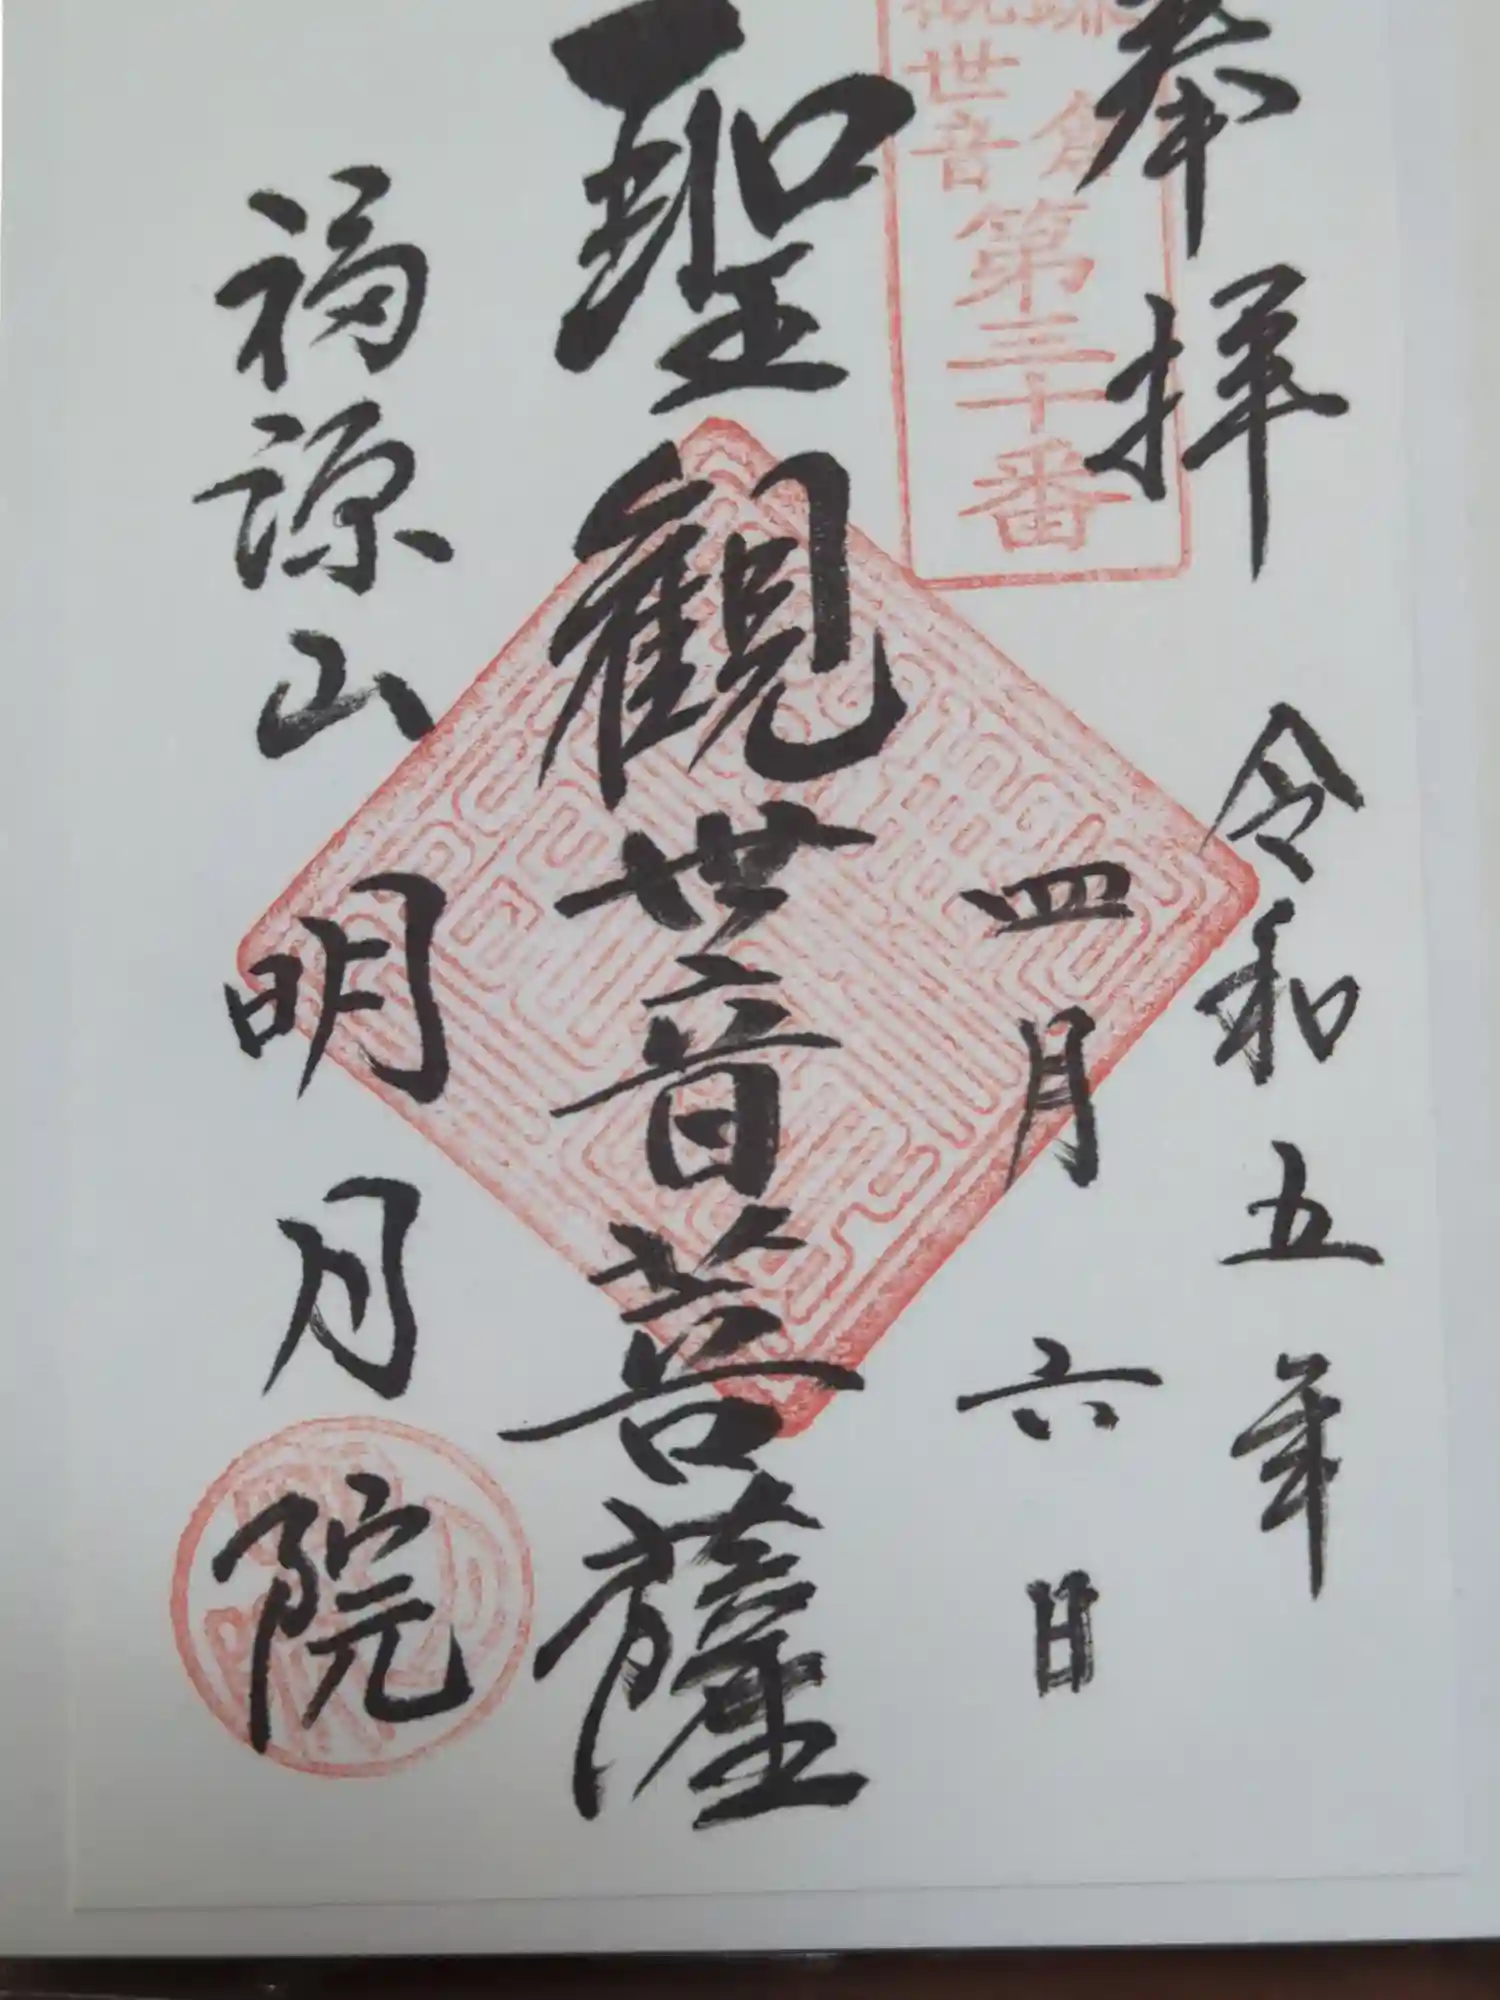 奉拝
令和五年
四月六日
倉
世音
第三十番
聖観世音菩薩
福源山
明月院